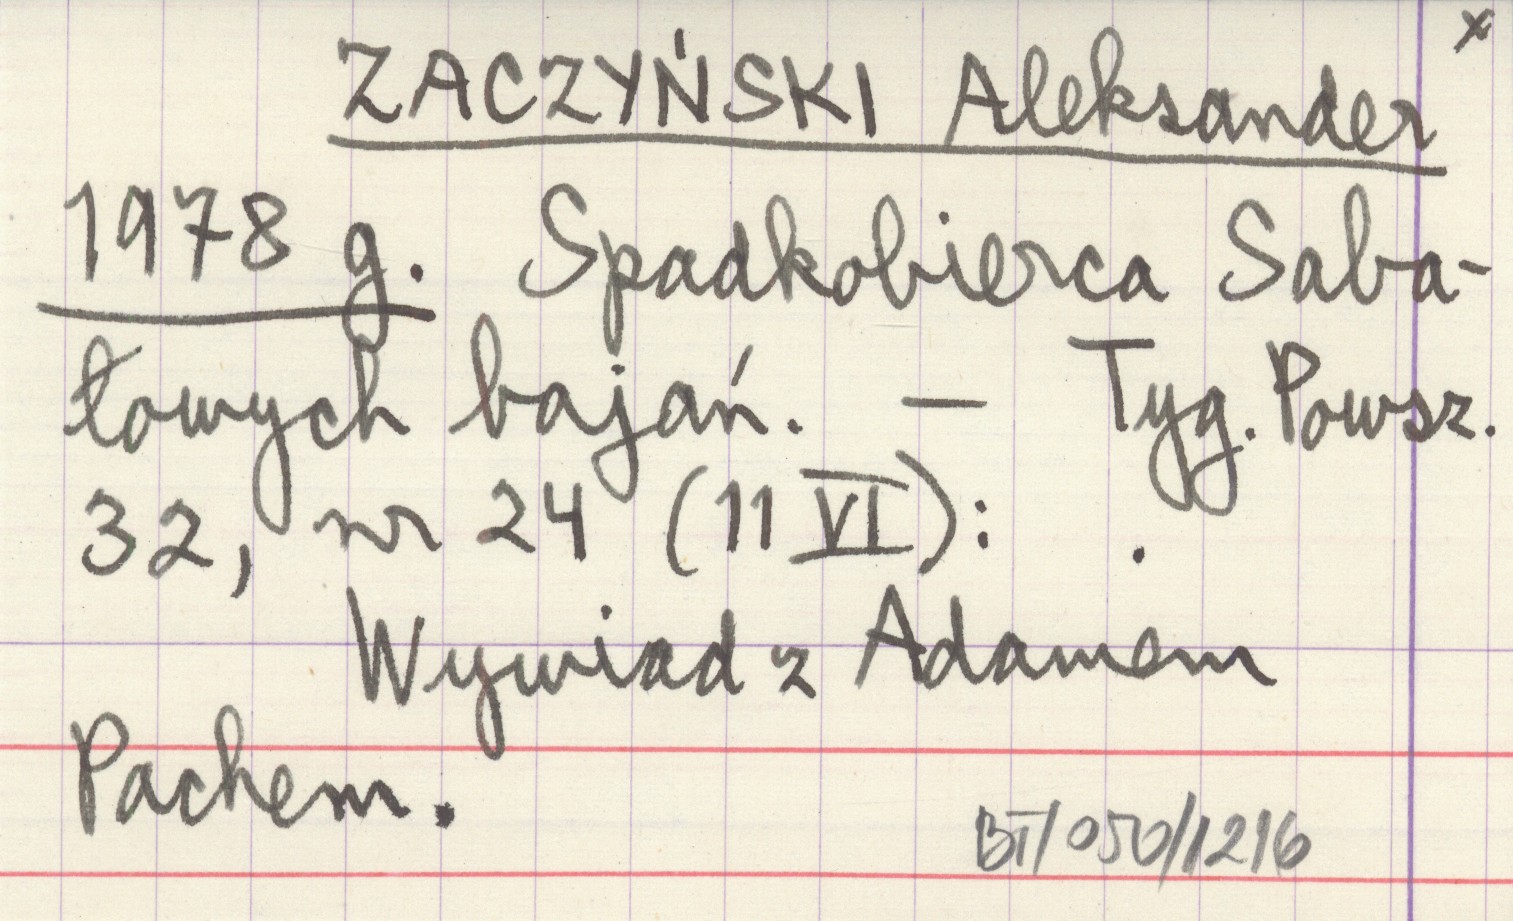 x
ZACZYŃSKI Aleksander
1978 g. Spadkobierca Saba-
łowych bajań. — Tyg. Powsz.
32, nr 24 (11 VI): .
Wywiad z Adamem
Pachem.
BT/050/1216